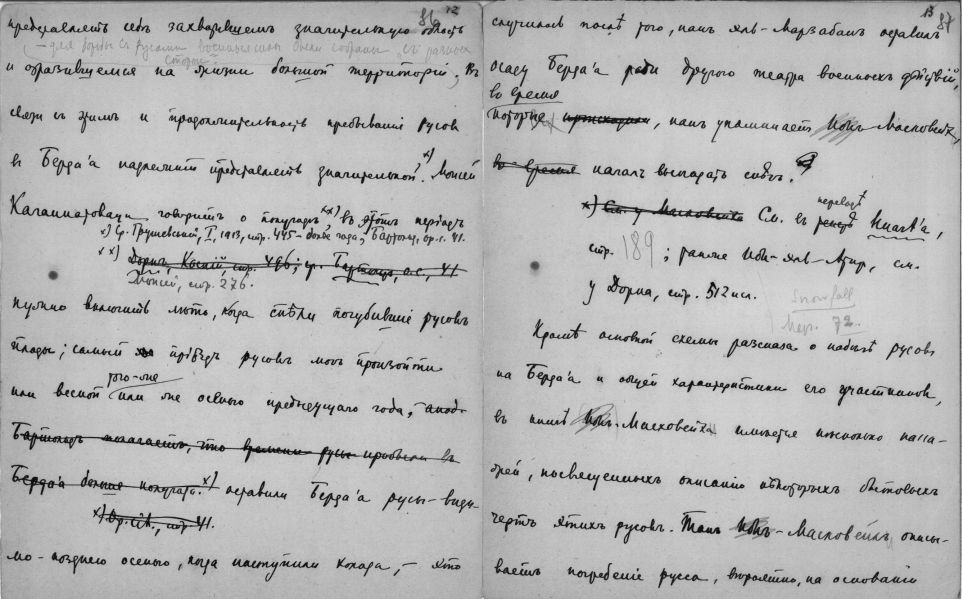 86 12
представлять себѣ захватившемъ значительную область
— для борьбы съ русами военные силы были собраны съ разныхъ
сторонъ.
и отразившемся на жизни большой территоріи. Въ
связи съ этимъ и продолжительность пребыванія русовъ
въ Берда'а надлежитъ представлять значительной. х) Моисей
Каганкатоваци говоритъ о полугодѣ хх) въ этотъ періодъ
х) Ср. Грушевскій, I, 1913, стр. 445 – болѣе года; Бартольд, op. c. 41.
хх) Дорнъ, Каспій, стр. 496; ср. Бартольд, o.c., 41
Моисей, стр. 276.
нужно включить лѣто, когда съѣли погубившіе русовъ
плоды; самый приѣздъ русовъ могъ произойти
или весной того-же или же осенью предыдущаго года,
Бартольдъ полагаетъ, что времени русы провели въ
Берда'а больше полугода. х) оставили Берда'а русы – види-
х) Op. cit., стр. 41.
мо – позднею осенью, когда наступили холода, – это
13 87
случилось послѣ того, какъ эль-Марзабан оставилъ
осаду Берда'а ради другого театра военныхъ дѣйствій,
во время
которые происходили, какъ упоминаетъ Ибн-Мисковейхъ,
во время началъ выпадать снѣгъ.
х) См. у Мисковейха См. въ переводѣ Huart'a,
стр. 189; также Ибн-эль-Атир, см.
у Дорна, стр. 512 исл.
Snowfall
Мер. 72.
Кромѣ основной схемы разсказа о набѣгѣ русовъ
на Берда'а и общей характеристики его участниковъ,
въ книгѣ Ибн-Мисковейха имѣется нѣсколько пасса-
жей, посвященныхъ описанію нѣкоторыхъ бытовыхъ
чертъ этихъ русовъ. Такъ Ибн-Мисковейхъ описы-
ваетъ погребеніе русса, вѣроятно, на основаніи